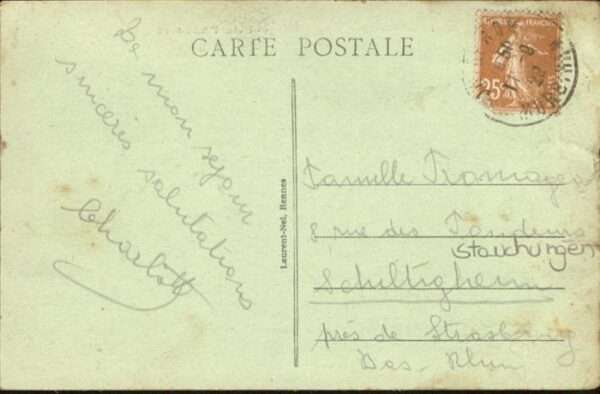 CARTE POSTALE
De mon sejour
sincères salutations
Charlott
Laurent-Nel, Rennes
25c
Famille
8 rue des
Stauchungen
Schiltigheim
près de Strasbourg
Bas-Rhin